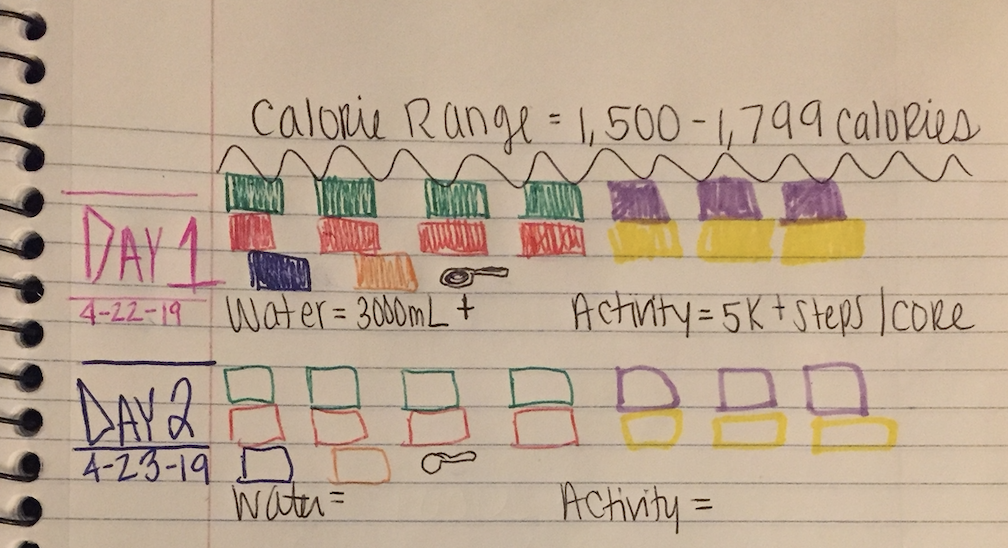 Calorie Range = 1,500-1,799 calories
DAY 1
4-22-19
Water = 3000mL +
Activity = 5K + steps / core
DAY 2
4-23-19
Water =
Activity =